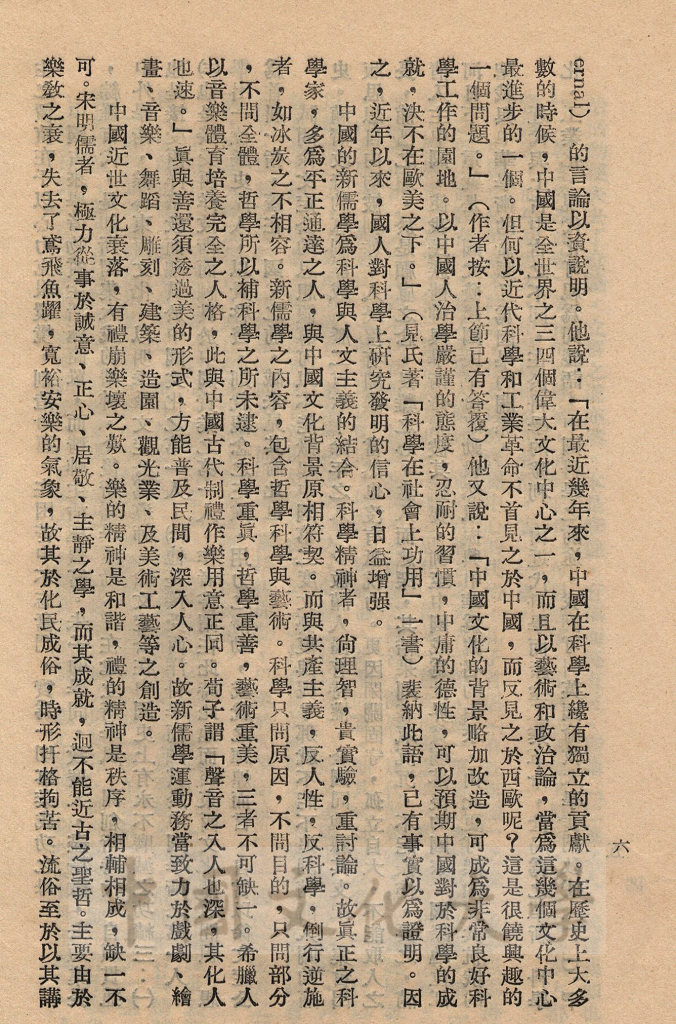 ernal)的言論以資說明。他說：「在最近幾年來，中國在科學上纔有獨立的貢獻。在歷史上大多
數的時候，中國是全世界之三四個偉大文化中心之一，而且以藝術和政治論，當爲這幾個文化中心
最進步的一個。但何以近代科學和工業革命不首見之於中國，而反見之於西歐呢？這是很饒興趣的
一個問題。」（作者按：上節已有答覆）他又說：「中國文化的背景略加改造，可成爲非常良好科
學工作的園地。以中國人治學嚴謹的態度，忍耐的習慣，中庸的德性，可以預期中國對於科學的成
就，決不在歐美之下。」（見氏著「科學在社會上功用」一書）裴納此話，已有事實以爲證明。因
之，近年以來，國人對科學上研究發明的信心，日益增强。
中國的新儒學爲科學與人文主義的結合。科學精神者，尚理智，貴實驗，重討論。故眞正之科
學家，多爲平正通達之人，與中國文化背景原相符契。而與共產主義，反人性，反科學，倒行逆施
者，如冰炭之不相容。新儒學之內容，包含哲學科學與藝術。科學只問原因，不問目的，只問部分
，不問全體，哲學所以補科學之所未逮。科學重眞，哲學重善，藝術重美，三者不可缺一。希臘人
以音樂體育培養完全之人格，此與中國古代制禮作樂用意正同。荀子謂「聲音之入人也深，其化人
也速。」眞與善還須透過美的形式，方能普及民間，深入人心。故新儒學運動務當致力於戲劇、繪
畫、音樂、舞蹈、雕刻、建築、造園、觀光業、及美術工藝等之創造。
中國近世文化衰落，有禮崩樂壞之歎。樂的精神是和諧，禮的精神是秩序，相輔相成，缺一不
可。宋明儒者，極力從事於誠意、正心、居敬、主靜之學，而其成就，迴不能近古之聖哲。主要由於
樂教之衰，失去了鳶飛魚躍，寬裕安樂的氣象，故其於化民成俗，時形扞格拘苦。流俗至於以其講
六
中國文化大學